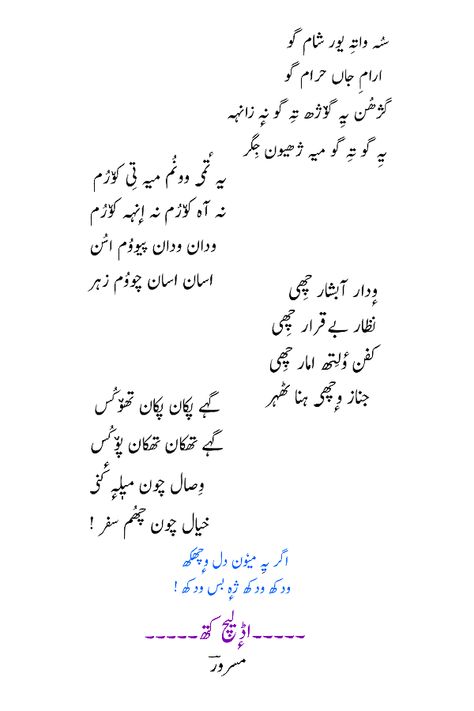 سُہ واتہِ یور شام گو
ارامِ جاں حرام گو
گژھُن یہِ گوٚژھ تہِ گو نہٕ زانہہ
یہِ گو تہِ گو میہ ژھیون جِگر
یہ تٔمی وونُم میہ تِی کوٚرُم
نہ آہ کوٚرُم نہ اِنہہ کوٚرُم
ودان ودان پیووُم اسُن
اسان اسان چووُم زہر
وٕدار آبشار چھِی
نظار بے قرار چھِی
کفن وٕلِتھ امار چھِی
جناز وٕچھی ہنا ٹھہر
گہے پکان پکان تھوٚکُس
گہے تھکان تھکان پوٚکُس
وِصال چون میلہٕ کٔنی
خیال چون چھُم سفر !
اگر یہِ میٚون دل وٕچھکھ
ودکھ ودکھ ژٕہ بس ودکھ !
-----اڈٕلیٚچ کتھ-----
مسرورؔ